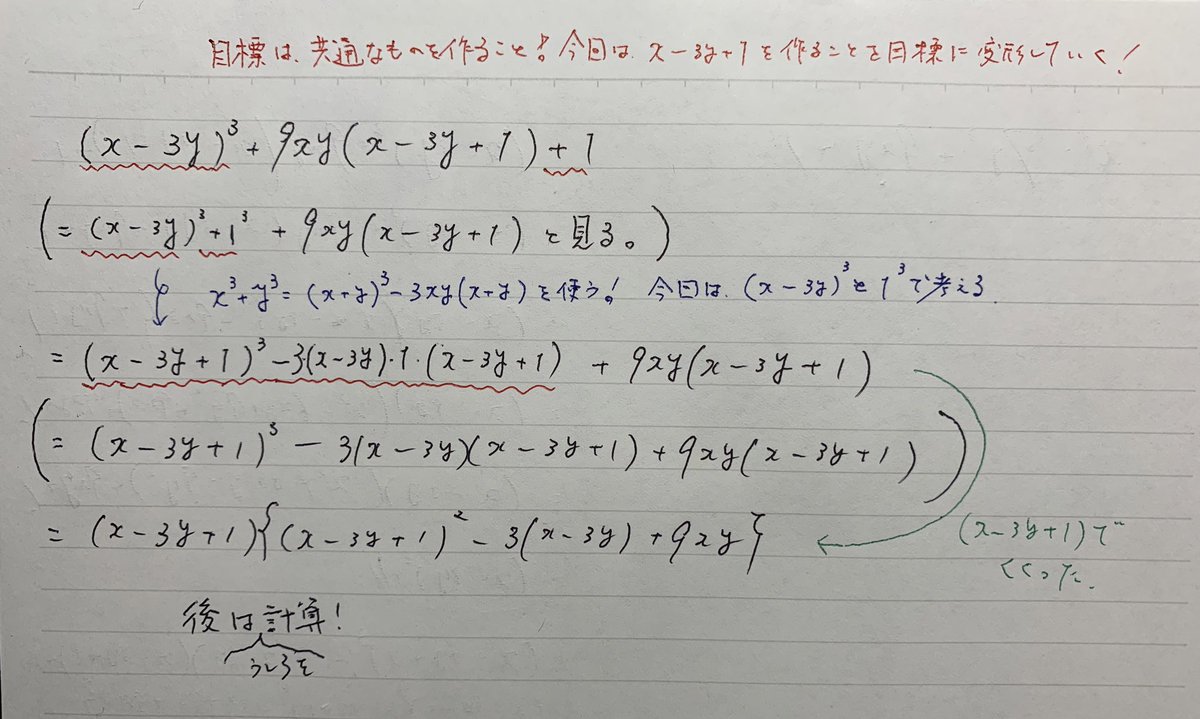 目標は、共通なものを作ること!今回は、x-3y+1を作ることを目標に変形していく!
(x-3y)³+9xy(x-3y+1)+1
(=(x-3y)³+1³+9xy(x-3y+1)と見る。)
x³+y³=(x+y)³-3xy(x+y)を使う! 今回は、(x-3y)³と1³で考える
=(x-3y+1)³-3(x-3y)·1·(x-3y+1)+9xy(x-3y+1)
(=(x-3y+1)³-3(x-3y)(x-3y+1)+9xy(x-3y+1))
=(x-3y+1){(x-3y+1)²-3(x-3y)+9xy}
(x-3y+1)で
くくった。
後は計算!
うしろを